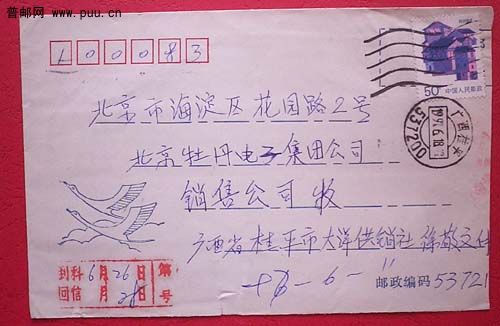 普邮网 www.puu.cn
100083
50分 中国人民邮政
广西桂平
1997.6.18
537200
北京市海淀区花园路2号
北京牡丹电子集团公司
销售公司 收
广西省桂平市大洋供销社 徐敬文
邮政编码 53721
到料 6月26日 第
回信 月 28 号